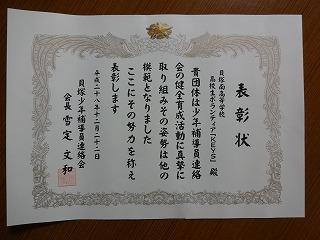 表彰状
貝塚南高等学校
高校生ボランティア「KEYS」殿
貴団体は少年補導員連絡
会の健全育成活動に真摯に
取り組みその姿勢は他の
模範となりました
ここにその努力を称え
表彰します
平成二十八年十二月二十二日
貝塚少年補導員連絡会
会長 雪定 文和